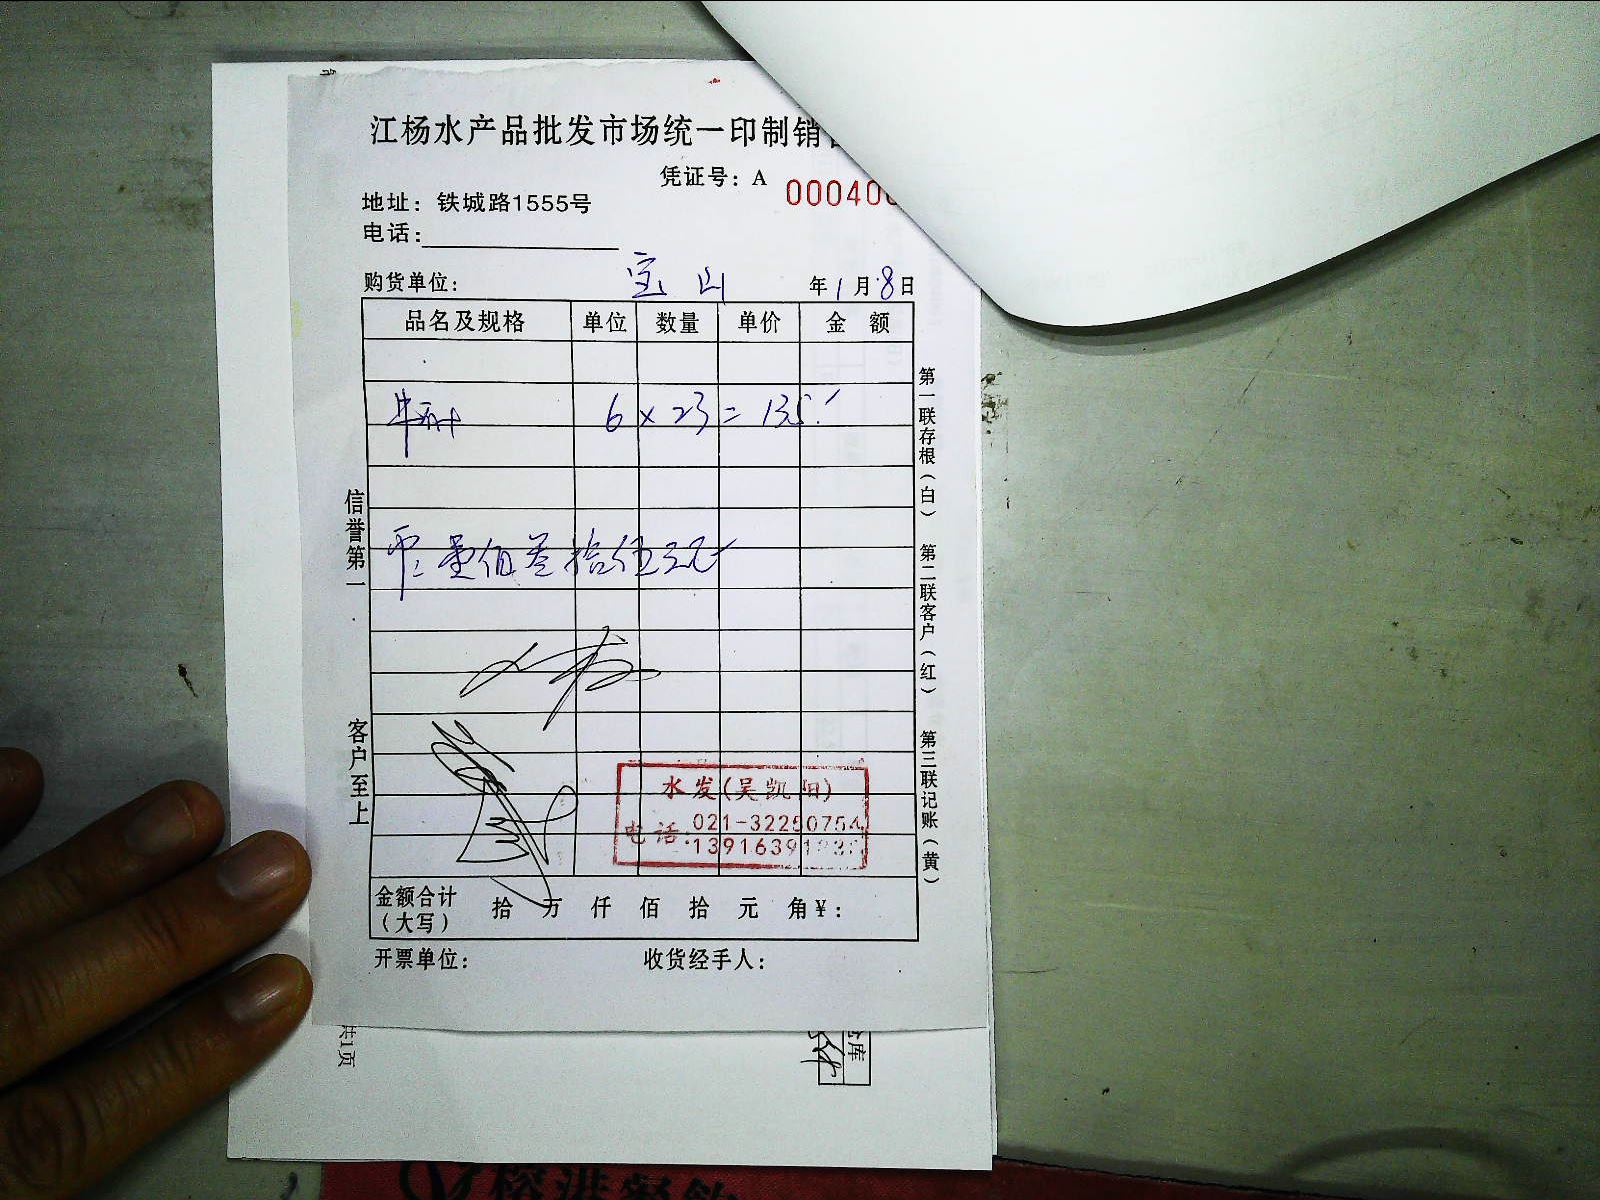 江杨水产品批发市场统一印制销
凭证号：A 00040
地址：铁城路1555号
电话：
购货单位： 宝山 年1月8日
品名及规格 单位 数量 单价 金 额
牛 6×23=135
壹佰叁拾伍元
信誉第一
客户至上
第一联存根（白）
第二联客户（红）
第三联记账（黄）
水发(吴凯阳)
电话：021-32250754
139163919
金额合计（大写） 拾 万 仟 佰 拾 元 角 ¥：
开票单位： 收货经手人：
共1页
库